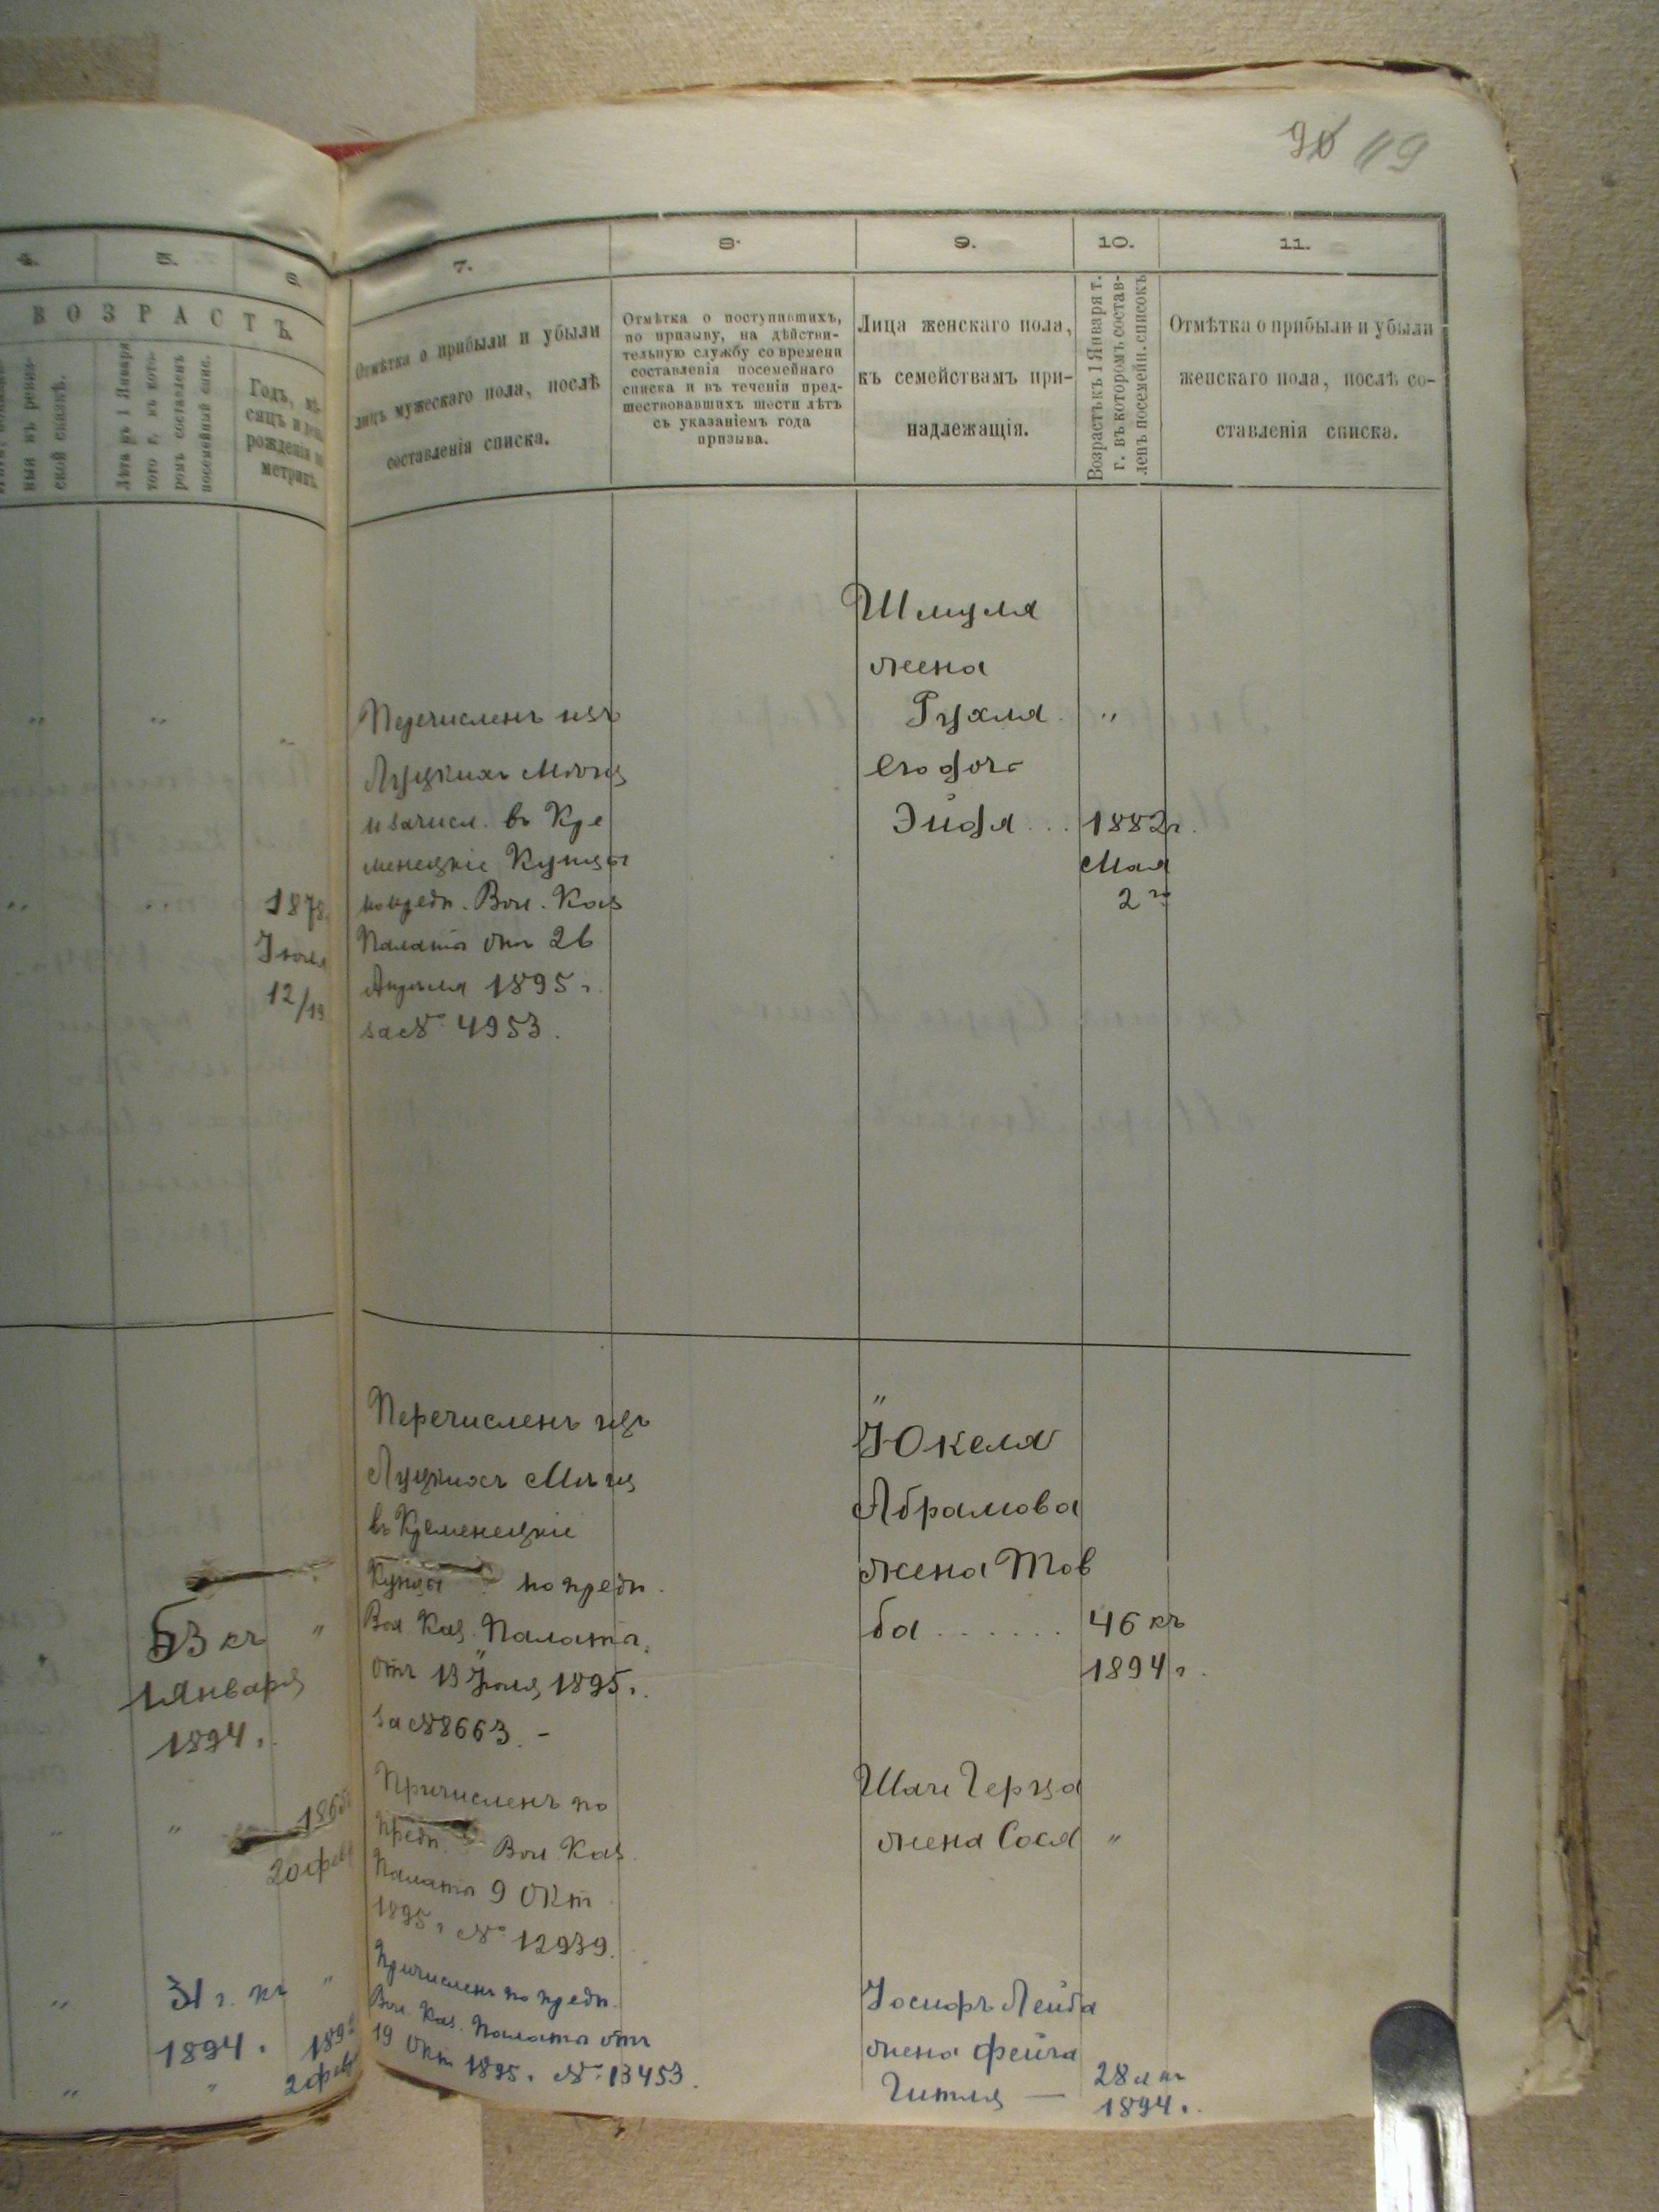 119
4.
5.
6.
7.
8.
9.
10.
11.
ВОЗРАСТЪ
ской сказкѣ.
Лѣта къ 1 Января
того г., въ кото-
ромъ составленъ
посемейный спис.
Годъ, мѣ-
сяцъ и
рожденія
метрик.
Отмѣтка о прибыли и убыли
лицъ мужескаго пола, послѣ
составленія списка.
Отмѣтка о поступившихъ,
по призыву, на дѣйстви-
тельную службу со времени
составленія посемейнаго
списка и въ теченіи пред-
шествовавшихъ шести лѣтъ
съ указаніемъ года
призыва.
Лица женскаго пола,
къ семействамъ при-
надлежащія.
Возрастъ къ 1 Января т.
г. въ которомъ состав-
ленъ посемейн. списокъ
Отмѣтка о прибыли и убыли
женскаго пола, послѣ со-
ставленія списка.
1878
Іюля
12/19
Перечисленъ изъ
Луцкихъ Мѣщ
и зачисл. въ Кре
менецкіе Купцы
по предп. Вол. Каз
Палаты отъ 26
Апрѣля 1895 г.
за № 4953.
Шмуля
жена
Рухля "
его дочь
Эйдля ... 1882 г.
Мая
2 го
53 къ "
1 Января
1894 г.
Перечисленъ изъ
Луцкихъ Мѣщ
въ Кременецкіе
Купцы по предп.
Вол. Каз. Палаты
отъ 13 Іюля 1895 г.
за № 8663. –
Юкеля
Абрамова
жена Тов
ба ...... 46 къ
1894 г.
20 фев
Причисленъ по
предп. Вол. Каз.
Палаты 9 Окт
1895 г. № 12939.
Шаи Герца
жена Сося "
31 г. къ "
1894 г.
2 фев
Причисленъ по предп.
Вол. Каз. Палаты отъ
19 Окт 1895 г. № 13453.
Іосифъ Лейба
жена Фейга
Гитля — 28 л къ
1894 г.